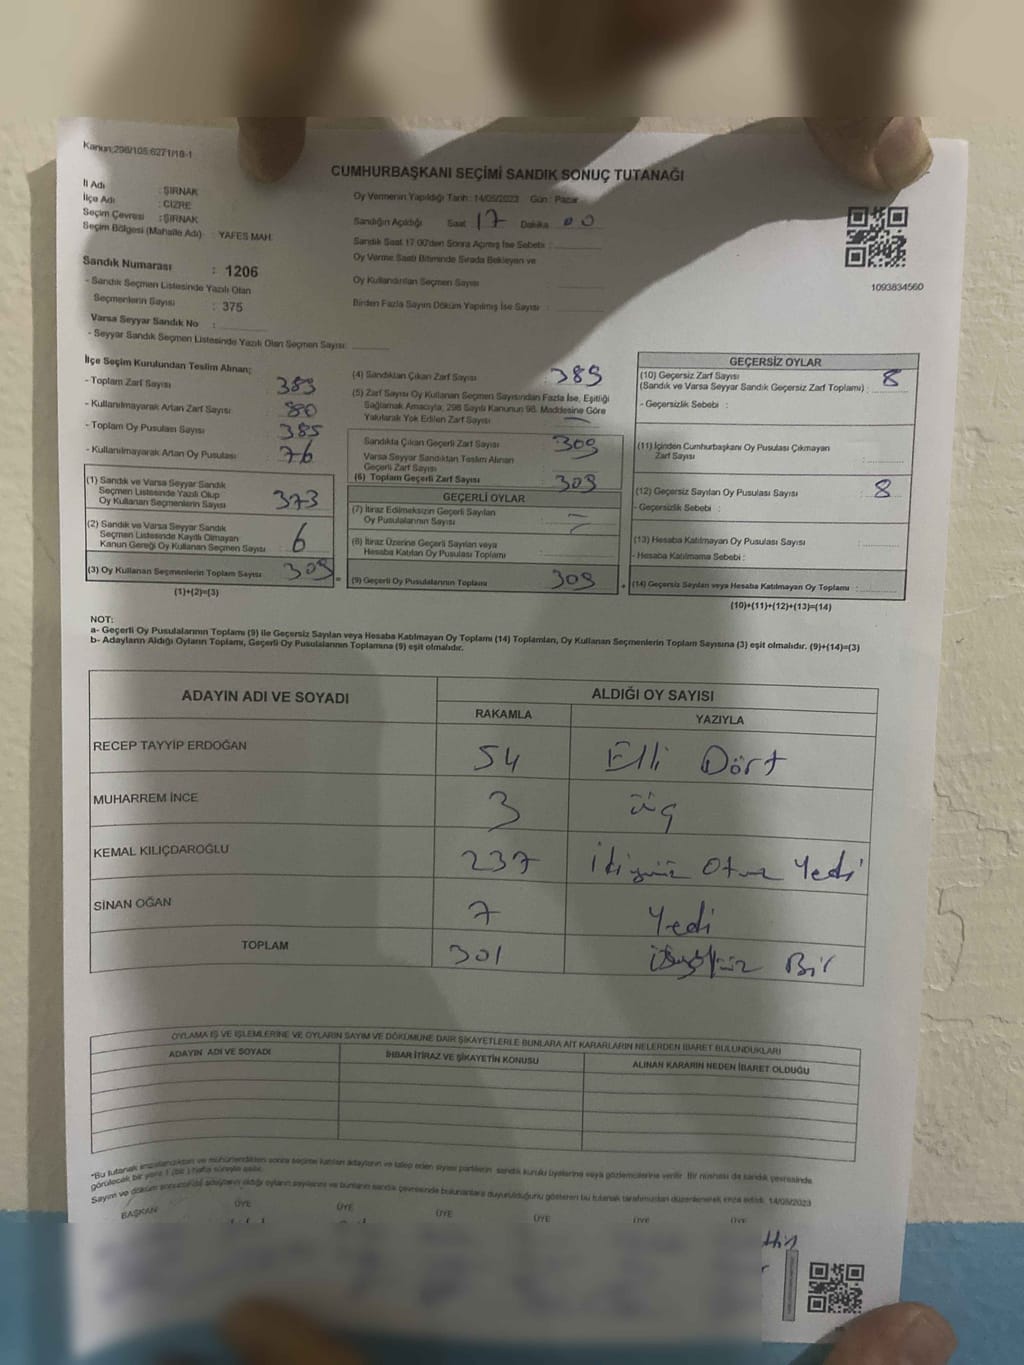 Kanun;298/105:6271/18-1
CUMHURBAŞKANI SEÇİMİ SANDIK SONUÇ TUTANAĞI
İl Adı : ŞIRNAK
İlçe Adı : CİZRE
Seçim Çevresi : ŞIRNAK
Seçim Bölgesi (Mahalle Adı) : YAFES MAH.
Sandık Numarası : 1206
- Sandık Seçmen Listesinde Yazılı Olan
Seçmenlerin Sayısı : 375
Varsa Seyyar Sandık No :
- Seyyar Sandık Seçmen Listesinde Yazılı Olan Seçmen Sayısı:
Oy Vermenin Yapıldığı Tarih : 14/05/2023 Gün : Pazar
Sandığın Açıldığı Saat 17 Dakika 00
Sandık Saat 17:00'den Sonra Açılmış İse Sebebi :
Oy Verme Saati Bitiminde Sırada Bekleyen ve
Oy Kullandırılan Seçmen Sayısı
Birden Fazla Sayım Döküm Yapılmış İse Sayısı :
1093834560
İlçe Seçim Kurulundan Teslim Alınan;
- Toplam Zarf Sayısı 389
- Kullanılmayarak Artan Zarf Sayısı : 80
- Toplam Oy Pusulası Sayısı 385
- Kullanılmayarak Artan Oy Pusulası 76
(1) Sandık ve Varsa Seyyar Sandık
Seçmen Listesinde Yazılı Olup
Oy Kullanan Seçmenlerin Sayısı 373
(2) Sandık ve Varsa Seyyar Sandık
Seçmen Listesinde Kayıtlı Olmayan
Kanun Gereği Oy Kullanan Seçmen Sayısı 6
(3) Oy Kullanan Seçmenlerin Toplam Sayısı 309
(1)+(2)=(3)
(4) Sandıktan Çıkan Zarf Sayısı : 389
(5) Zarf Sayısı Oy Kullanan Seçmen Sayısından Fazla İse, Eşitliği
Sağlamak Amacıyla; 298 Sayılı Kanunun 98. Maddesine Göre
Yakılarak Yok Edilen Zarf Sayısı
Sandıkta Çıkan Geçerli Zarf Sayısı 309
Varsa Seyyar Sandıktan Teslim Alınan
Geçerli Zarf Sayısı
(6) Toplam Geçerli Zarf Sayısı 309
GEÇERLİ OYLAR
(7) İtiraz Edilmeksizin Geçerli Sayılan
Oy Pusulalarının Sayısı
(8) İtiraz Üzerine Geçerli Sayılan veya
Hesaba Katılan Oy Pusulası Toplamı
(9) Geçerli Oy Pusulalarının Toplamı 309
GEÇERSİZ OYLAR
(10) Geçersiz Zarf Sayısı
(Sandık ve Varsa Seyyar Sandık Geçersiz Zarf Toplamı) : 8
- Geçersizlik Sebebi :
(11) İçinden Cumhurbaşkanı Oy Pusulası Çıkmayan
Zarf Sayısı
(12) Geçersiz Sayılan Oy Pusulası Sayısı : 8
- Geçersizlik Sebebi :
(13) Hesaba Katılmayan Oy Pusulası Sayısı
- Hesaba Katılmama Sebebi :
(14) Geçersiz Sayılan veya Hesaba Katılmayan Oy Toplamı :
(10)+(11)+(12)+(13)=(14)
NOT:
a- Geçerli Oy Pusulalarının Toplamı (9) ile Geçersiz Sayılan veya Hesaba Katılmayan Oy Toplamı (14) Toplamları, Oy Kullanan Seçmenlerin Toplam Sayısına (3) eşit olmalıdır. (9)+(14)=(3)
b- Adayların Aldığı Oyların Toplamı, Geçerli Oy Pusulalarının Toplamına (9) eşit olmalıdır.
ADAYIN ADI VE SOYADI ALDIĞI OY SAYISI
RAKAMLA YAZIYLA
RECEP TAYYİP ERDOĞAN 54 Elli Dört
MUHARREM İNCE 3 üç
KEMAL KILIÇDAROĞLU 237 ikiyüz Otuz Yedi
SİNAN OĞAN 7 Yedi
TOPLAM 301 Bir
OYLAMA İŞ VE İŞLEMLERİNE VE OYLARIN SAYIM VE DÖKÜMÜNE DAİR ŞİKAYETLERLE BUNLARA AİT KARARLARIN NELERDEN İBARET BULUNDUKLARI
ADAYIN ADI VE SOYADI İHBAR İTİRAZ VE ŞİKAYETİN KONUSU ALINAN KARARIN NEDEN İBARET OLDUĞU
*Bu tutanak imzalandıktan ve mühürlendikten sonra seçime katılan adayların ve talep eden siyasi partilerin sandık kurulu üyelerine veya gözlemcilerine verilir. Bir nüshası da sandık çevresinde
görülecek bir yere 1 (bir) hafta süreyle asılır.
Sayım ve döküm sonucunda adayların aldığı oyların sayılarını ve bunların sandık çevresinde bulunanlara duyurulduğunu gösteren bu tutanak tarafımızdan düzenlenerek imza edildi. 14/05/2023
BAŞKAN ÜYE ÜYE ÜYE ÜYE ÜYE ÜYE